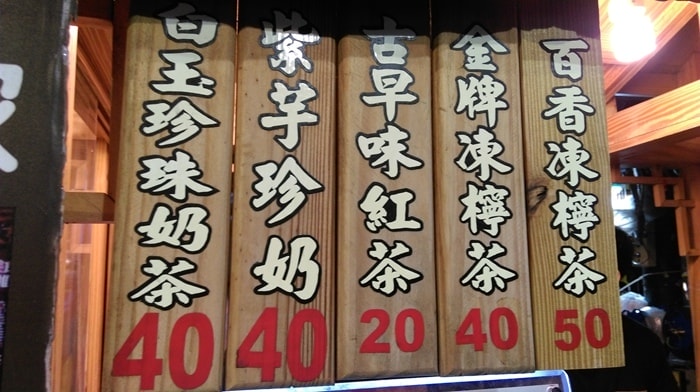 白玉珍珠奶茶
40
紫芋珍奶
40
古早味紅茶
20
金牌凍檸茶
40
百香凍檸茶
50